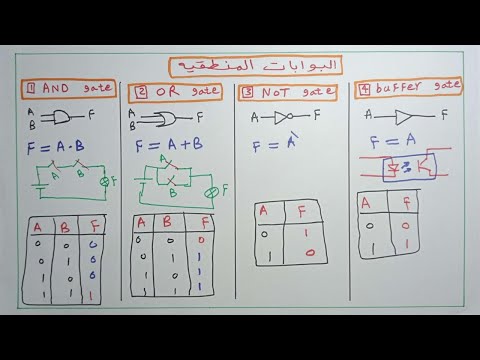 البوابات المنطقيه
1 AND gate
A
B
F
F = A·B
A
B
F
A B F
0 0 0
0 1 0
1 0 0
1 1 1
2 OR gate
A
B
F
F = A+B
A
B
F
A B F
0 0 0
0 1 1
1 0 1
1 1 1
3 NOT gate
A
F
F = A`
A F
0 1
1 0
4 buffer gate
A
F
F = A
A F
0 0
1 1